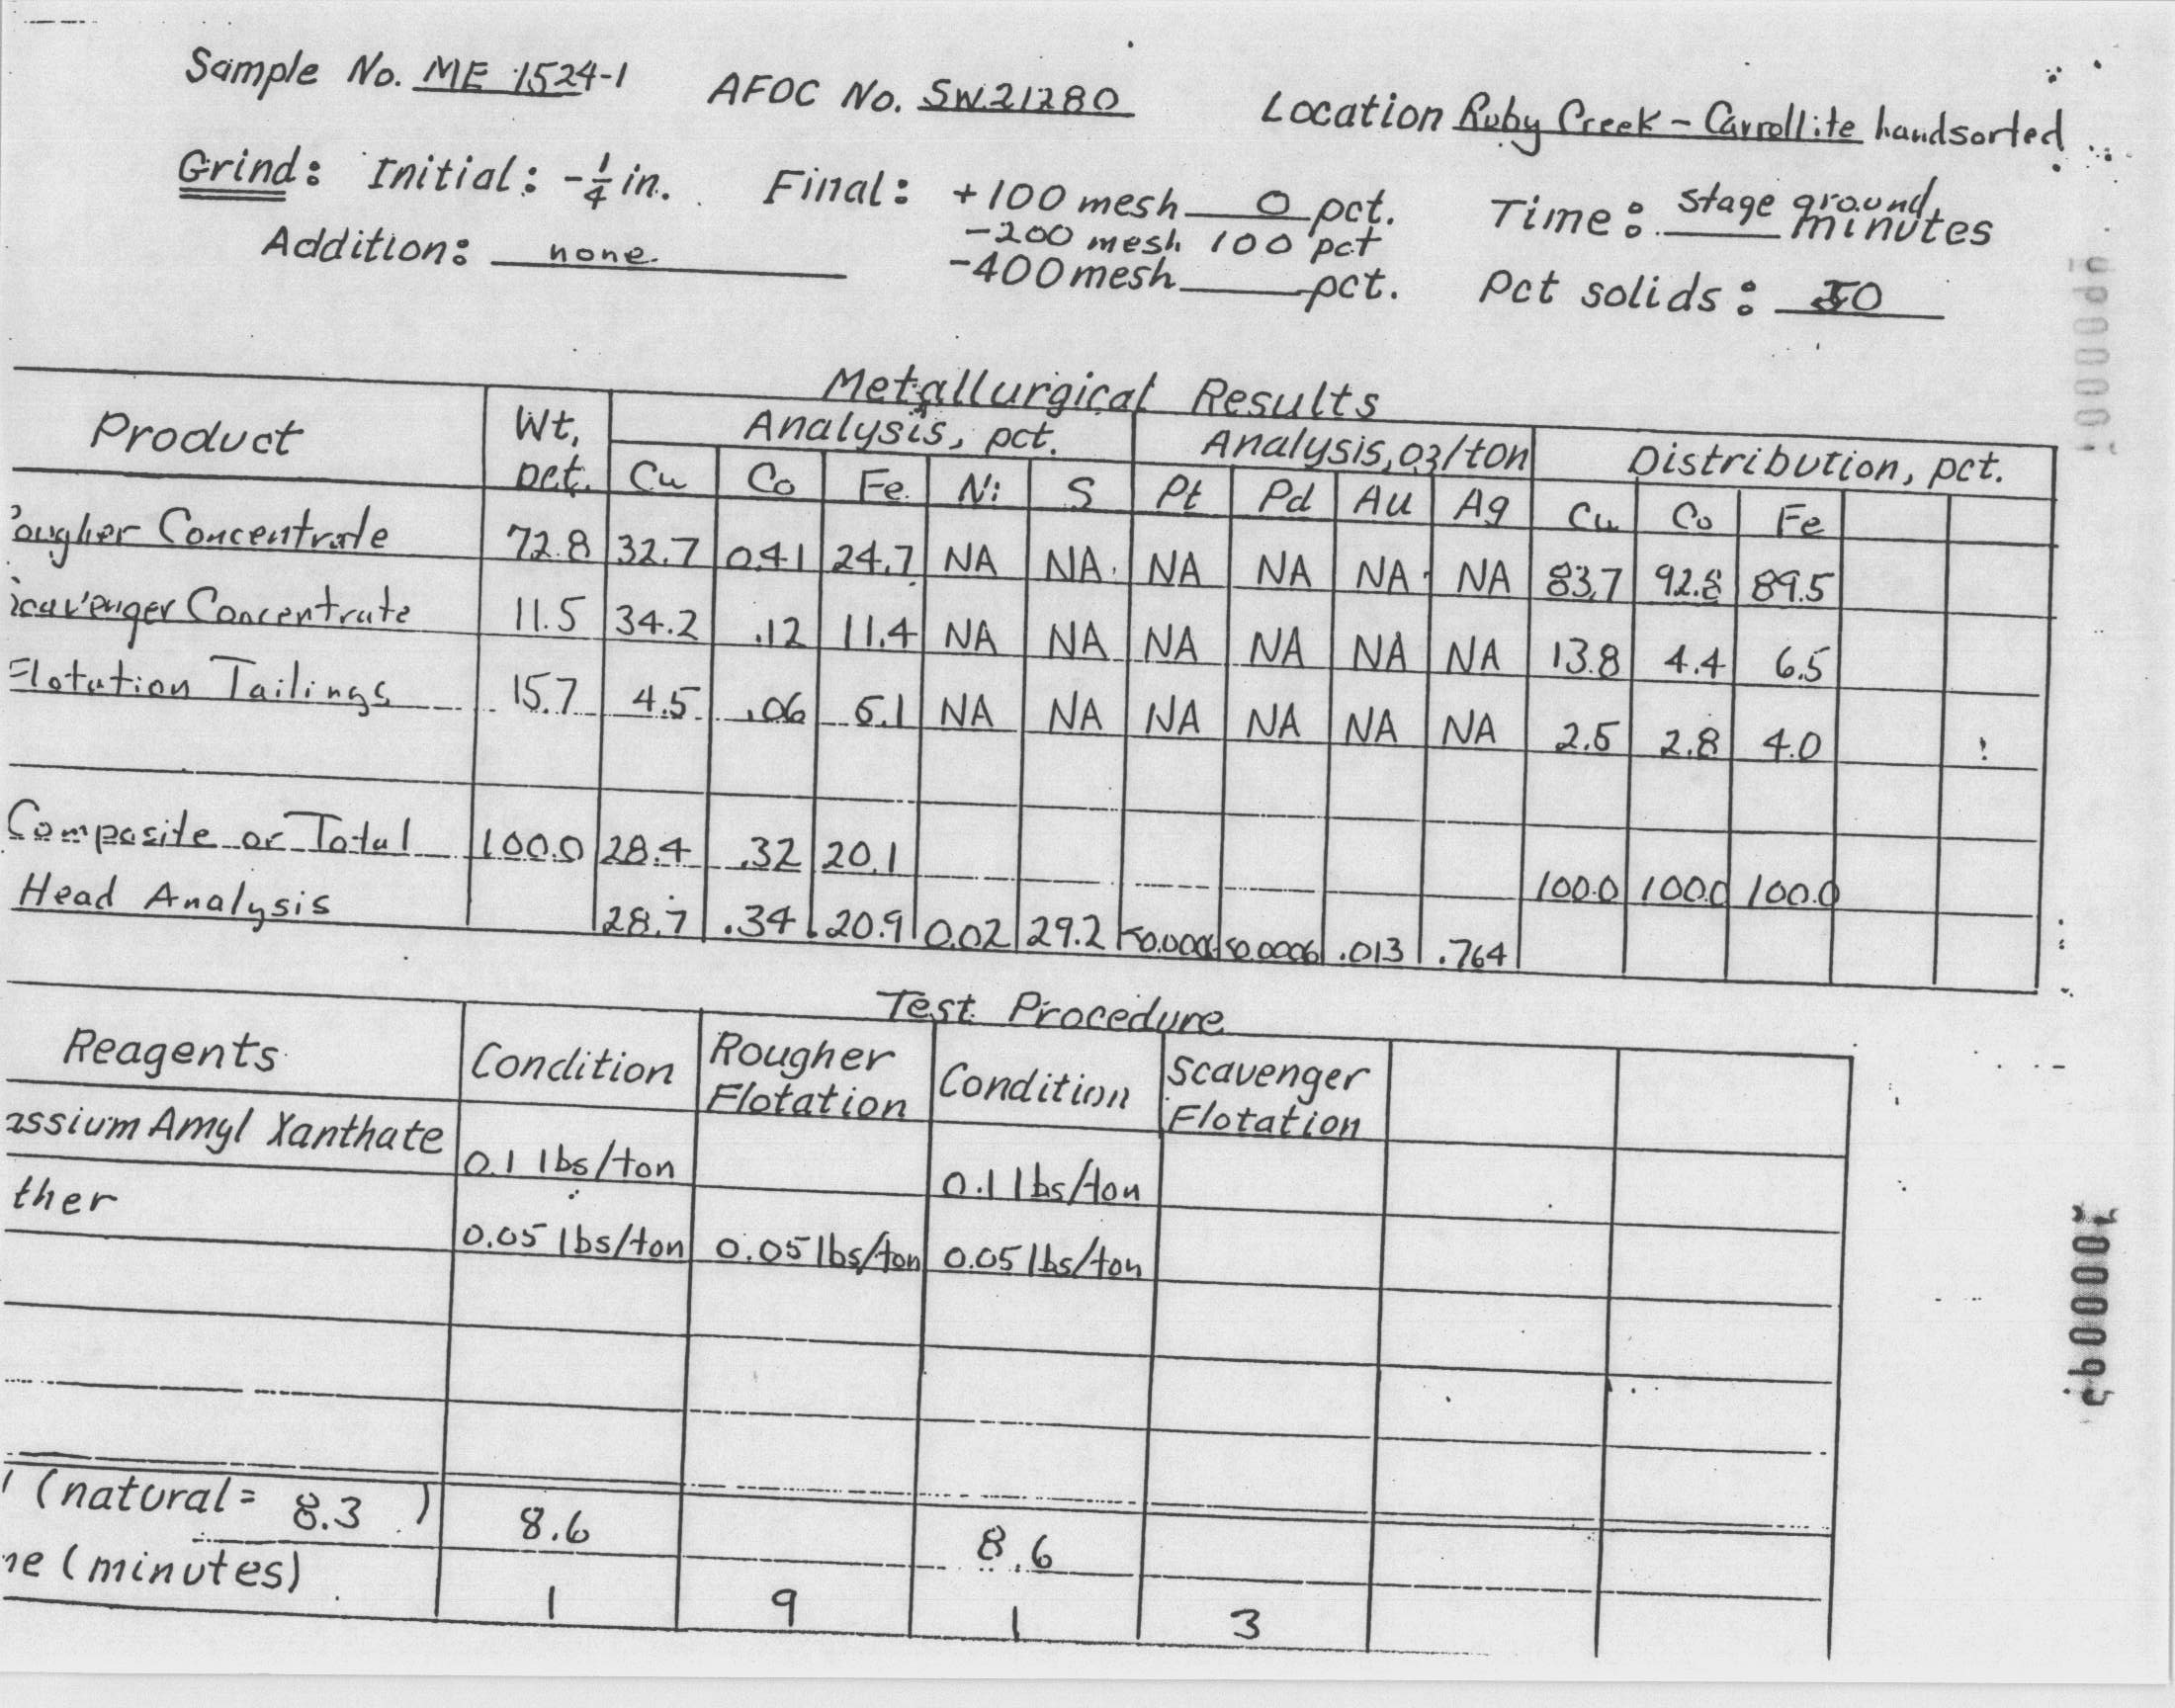 Sample No. ME 1524-1 AFOC No. SW21280 Location Ruby Creek - Carrollite handsorted
Grind: Initial: -1/4 in. Final: +100 mesh 0 pct. Time: stage ground minutes
-200 mesh 100 pct
Addition: none -400 mesh pct. Pct solids: 50
Metallurgical Results
Product Wt. pct. Analysis, pct. Analysis, oz/ton Distribution, pct.
Cu Co Fe Ni S Pt Pd Au Ag Cu Co Fe
ougher Concentrate 72.8 32.7 0.41 24.7 NA NA NA NA NA NA 83.7 92.8 89.5
cavenger Concentrate 11.5 34.2 .12 11.4 NA NA NA NA NA NA 13.8 4.4 6.5
Flotation Tailings 15.7 4.5 .06 5.1 NA NA NA NA NA NA 2.5 2.8 4.0
Composite or Total 100.0 28.4 .32 20.1 100.0 100.0 100.0
Head Analysis 28.7 .34 20.9 0.02 29.2 <0.0006 <0.0006 .013 .764
Test Procedure
Reagents Condition Rougher Flotation Condition Scavenger Flotation
assium Amyl Xanthate 0.1 lbs/ton 0.1 lbs/ton
ther 0.05 lbs/ton 0.05 lbs/ton 0.05 lbs/ton
(natural = 8.3) 8.6 8.6
me (minutes) 1 9 1 3